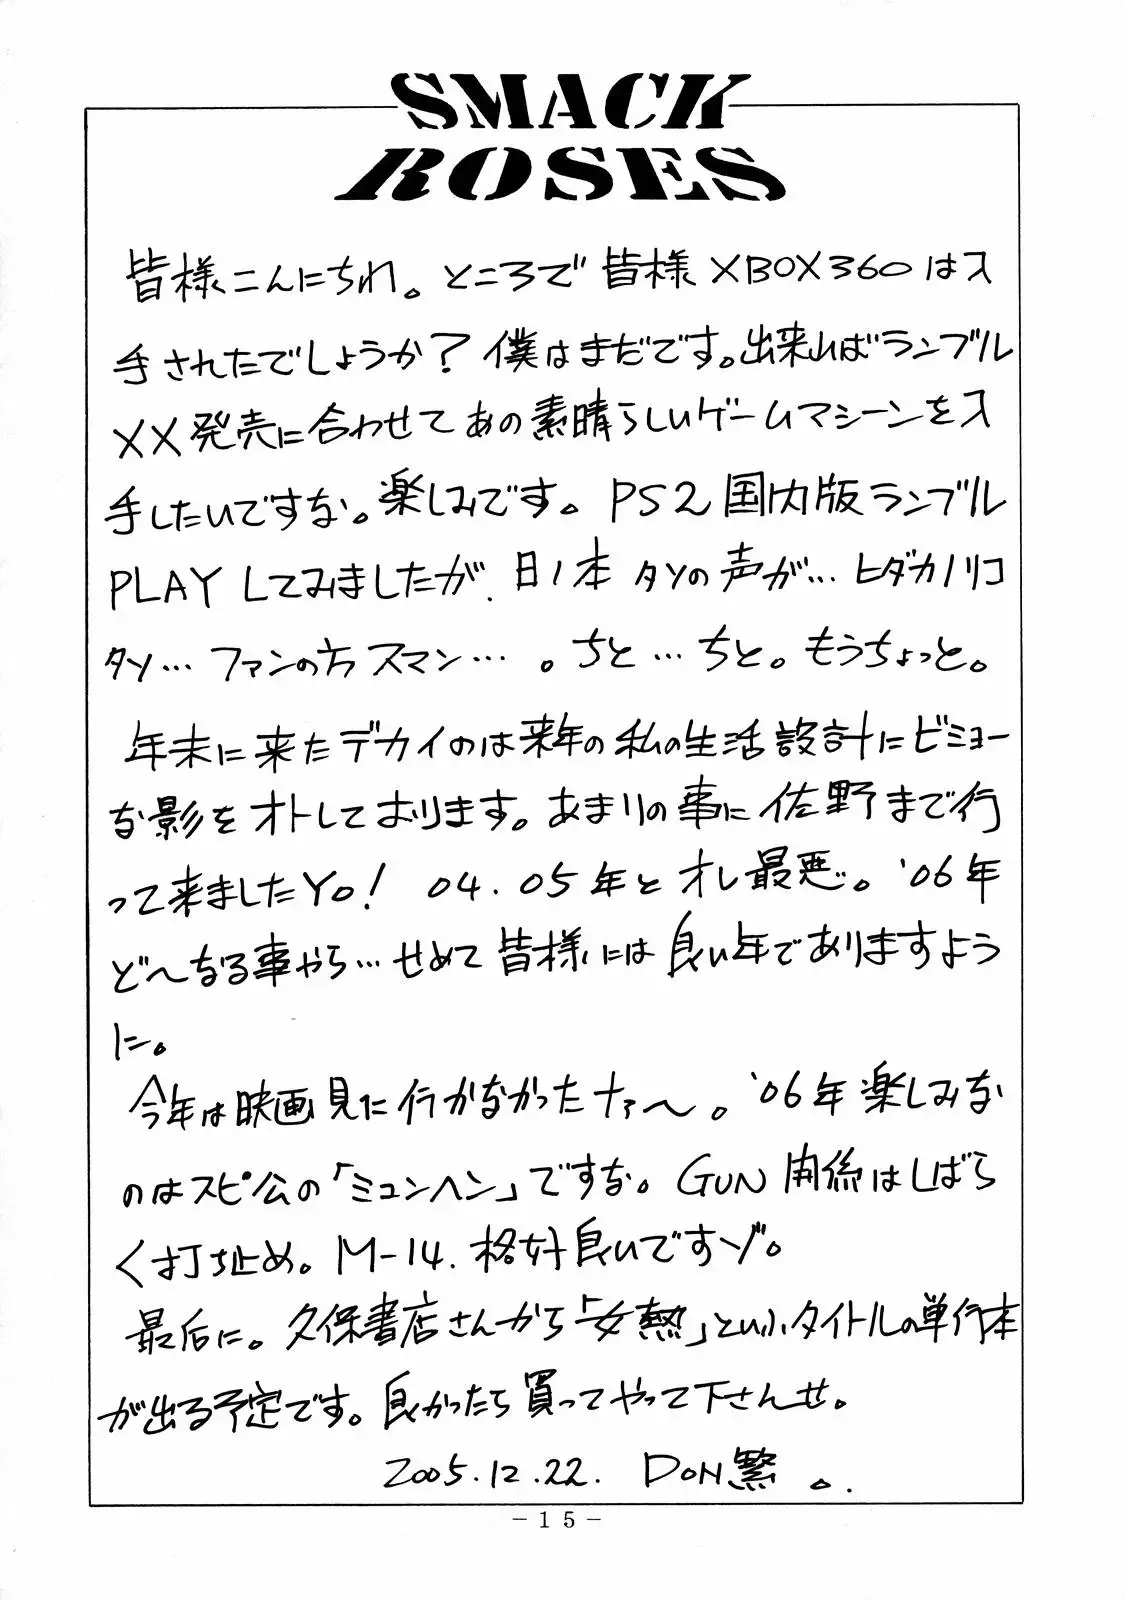 SMACK
ROSES
皆様こんにちわ。ところで皆様XBOX360は入
手されたでしょうか?僕はまだです。出来ればランブル
XX発売に合わせてあの素晴らしいゲームマシーンを入
手したいですな。楽しみです。PS2国内版ランブル
PLAYしてみましたが、日ノ本タソの声が…ヒダカノリコ
タソ…ファンの方スマン…。ちと…ちと。もうちょっと。
年末に来たデカイのは来年の私の生活設計にビミョー
な影をオトしております。あまりの事に佐野まで行
って来ましたYo! 04.05年とオレ最悪。'06年
ど〜なる事やら…せめて皆様には良い年でありますよう
に。
今年は映画見に行かなかったナァ〜。'06年楽しみな
のはスピ公の「ミュンヘン」ですな。GUN関係はしばら
く打ち止め。M-14.格好良いですゾ。
最后に。久保書店さんから「女熱」というタイトルの単行本
が出る予定です。良かったら買ってやって下さんせ。
2005.12.22. DON繁 。.
-15-